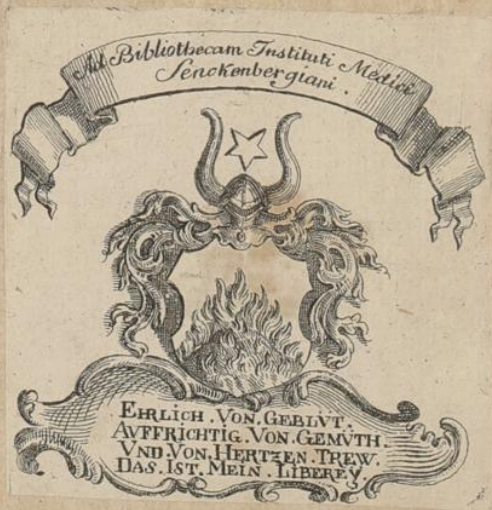 Ad Bibliothecam Instituti Medici
Senckenbergiani.
EHRLICH.VON.GEBLVT.
AVFFRICHTIG.VON.GEMÜTH.
VND.VON.HERTZEN.TREW.
DAS.IST.MEIN.LIBEREY.